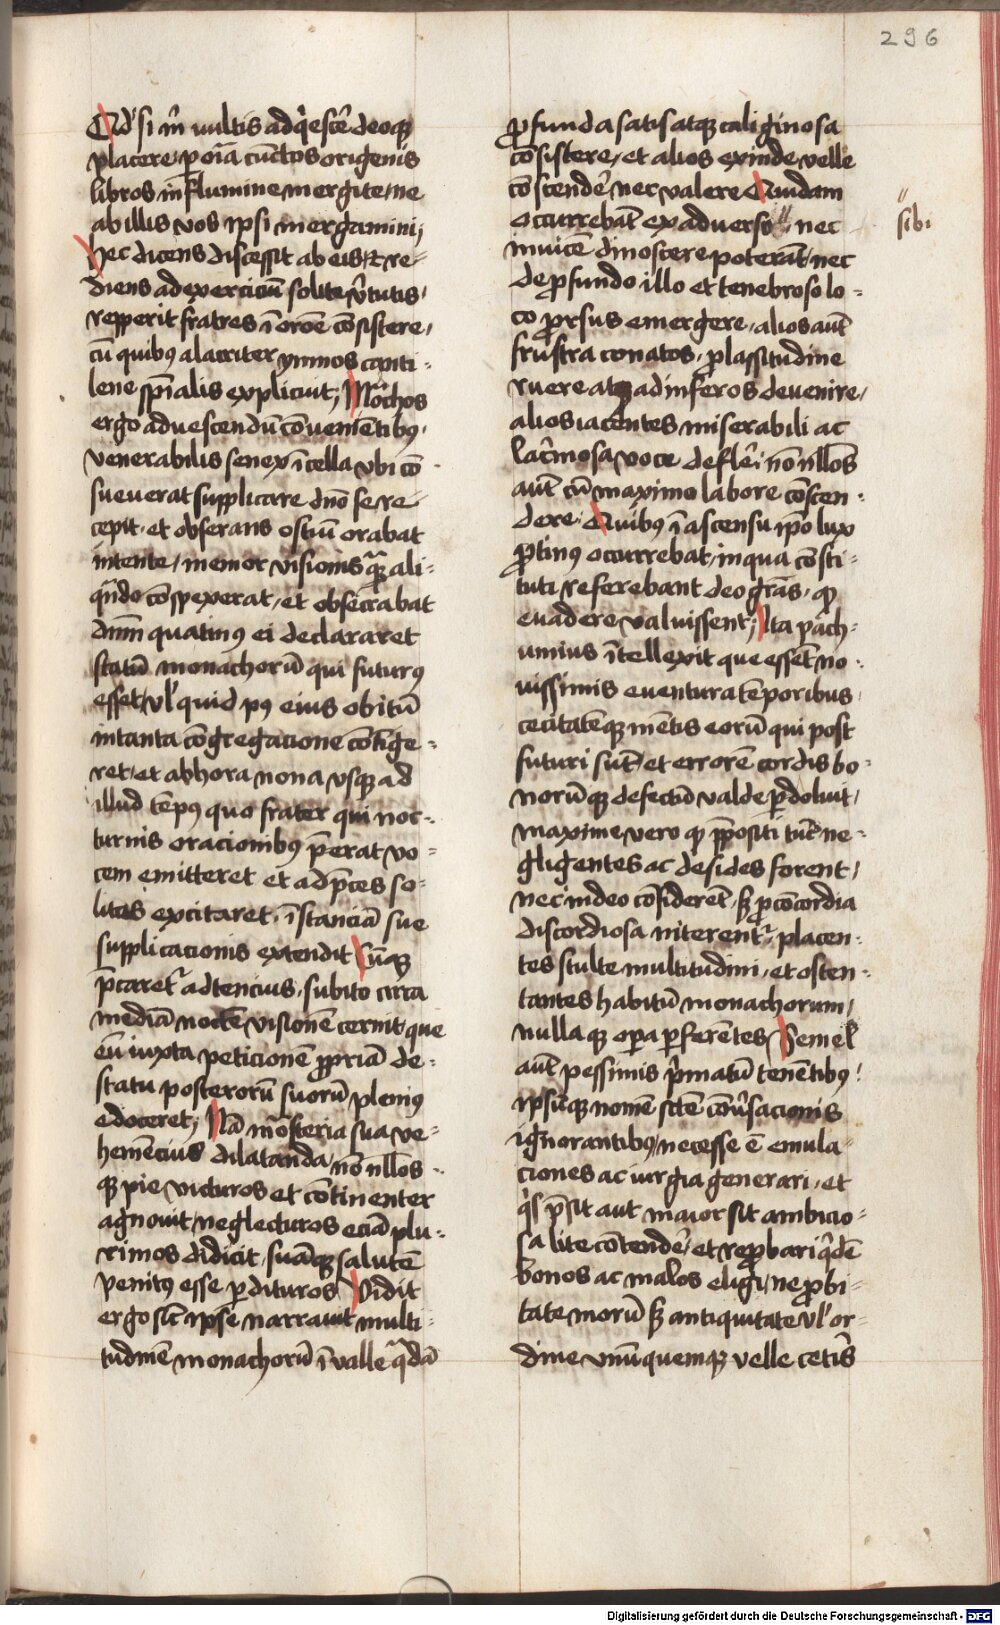 296
Qd' si m̄ uultis adq̇escē deoqꝫ
placere ꝑ oīa cūctos origenis
libros in flumine mergite ne
ab illis vos ipsi mergamini;
Hec dicens discessit ab eis et re-
diens ad exercicium solite v̄tutis
repperit fratres ī orōe cōsistere,
cū quibꝯ alacriter ymnos canti-
lene spīalis explicuit; Mōchos
ergo ad uescendū cōuenīetibꝯ,
venerabilis senex ī cella vbi cō-
sueuerat supplicare dn̄o se re-
cepit et obserans ostiū orabat
intente, memor visionis quā ali-
qn̄do cōspexerat, et obsecrabat
dn̄m quatinꝯ ei declararet
statū monachorū qui futurꝯ
esset, vl' quid pꝯ eius obitū
in tanta cōgregacione cōtige-
ret, et ab hora nona vsqꝫ ad
illud tēpꝯ quo frater qui noc-
turnis oracionibꝯ p̄erat vo-
cem emitteret et ad p̄ces so-
litas excitaret, īstanciā sue
supplicacionis extendit Cūqꝫ
p̄caretr̄ adtencius, subito circa
mediā noctē visionē cernit que
eū iuxta peticionē ꝓpriā de
statu posterorū suorū plenius
edoceret; Nā mōsteria sua ve-
hemēcius dilatanda nōnllos
qꝫ pie victuros et continenter
agnouit, neglecturos eciā plu-
rimos didicit, suāqꝫ salutē
penitꝯ esse ꝑdituros Vidit
ergo sic̄ ipse narrauit multi-
tudinē monachorū ī valle q̄dā
ꝓfunda satis atqꝫ caliginosa
cōsistere, et alios exinde velle
cōscendē nec valere Quidam
occurrebāt ex aduerso // nec
// sibi
inuicē dinoscere poterāt, nec
de ꝓfundo illo et tenebroso lo-
co ꝓrsus emergere, alios aūt
frustra conatos, p̄ lassitudine
ruere atqꝫ ad inferos deuenire,
alios iacentes miserabili ac
lac̄mosa voce deflēi nōnllōs
aūt cū maximo labore cōscen-
dere. Quibꝯ ī ascensu ip̄o lux
ꝓtinꝯ occurrebat, in qua cōsti-
tuti referebant deo grās, qꝫ
euadere valuissent; Ita pach-
umius ītellexit que essēt no-
uissimis euentura tēporibus
cecitatēqꝫ mētis eorū qui post
futuri sūt, et errorē cordis bo-
norūqꝫ defectū valde ꝑdoluit,
maxime vero qꝫ p̄positi tūc ne-
gligentes ac desides forent,
nec in deo cōfiderēt, sꝫ ꝓ cōcordia
discordiosa niterent̄, placen-
tes stulte multitudini, et osten-
tantes habitū monachorum,
nullaqꝫ oꝑa ꝑferētes Semel
aūt pessimis p̄matū tenētibꝯ
ipsūqꝫ nomē sc̄te cōuersacionis
ignorantibꝯ, necesse ē emula-
ciones ac iurgia generari, et
q̇s p̄sit aut maior sit ambicio-
sa lite cōtendē, et reꝓbari q̇dē
bonos ac malos eligi, ne ꝓbi-
tate morū sꝫ antiquitate vl' or-
dine vnūquemqꝫ velle cetīs
Digitalisierung gefördert durch die Deutsche Forschungsgemeinschaft - DFG